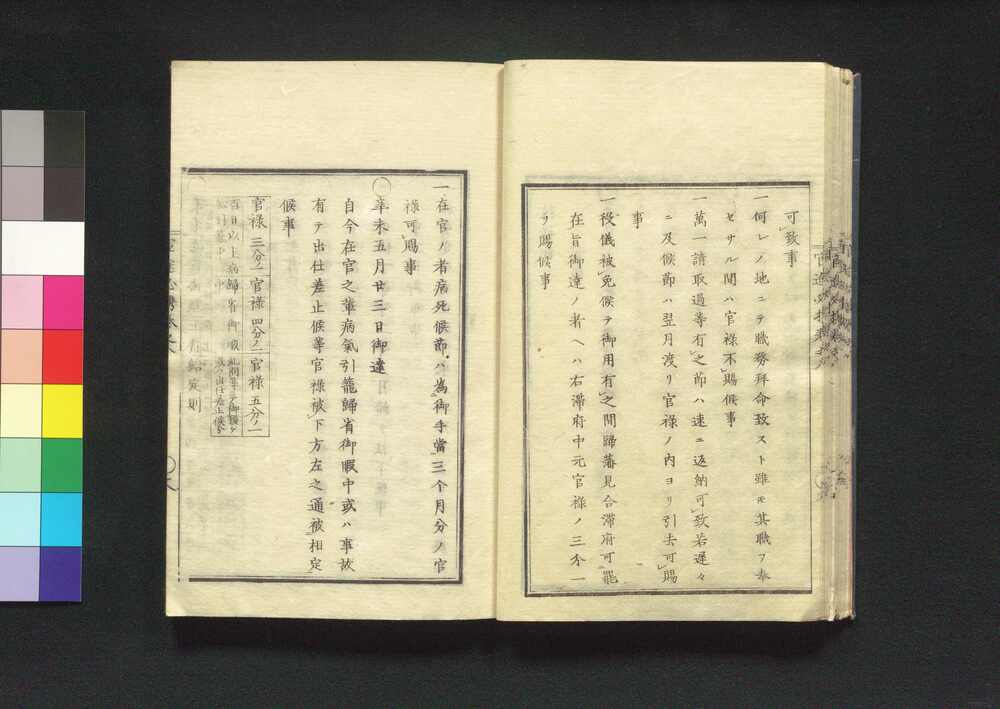 可致事
一何レノ地ニテ職務拜命致スト雖モ其職ヲ奉
セサル間ハ官祿不賜候事
一萬一請取過等有之節ハ速ニ返納可致若遲々
ニ及候節ハ翌月渡リ官祿ノ内ヨリ引去可賜
事
一役儀被免候テ御用有之間歸藩見合滯府可罷
在旨御達ノ者ヘハ右滯府中元官祿ノ三分一
ヲ賜候事
一在官ノ者病死候節ハ為御手當三个月分ノ官
祿可賜事
〇辛未五月廿三日御達
自今在官之輩病氣引籠歸省御暇中或ハ事故
有テ出仕差止候等官祿被下方左之通被相定
候事
官祿三分ノ一
官祿四分ノ一
官祿五分ノ一
百日以上病
歸省御暇